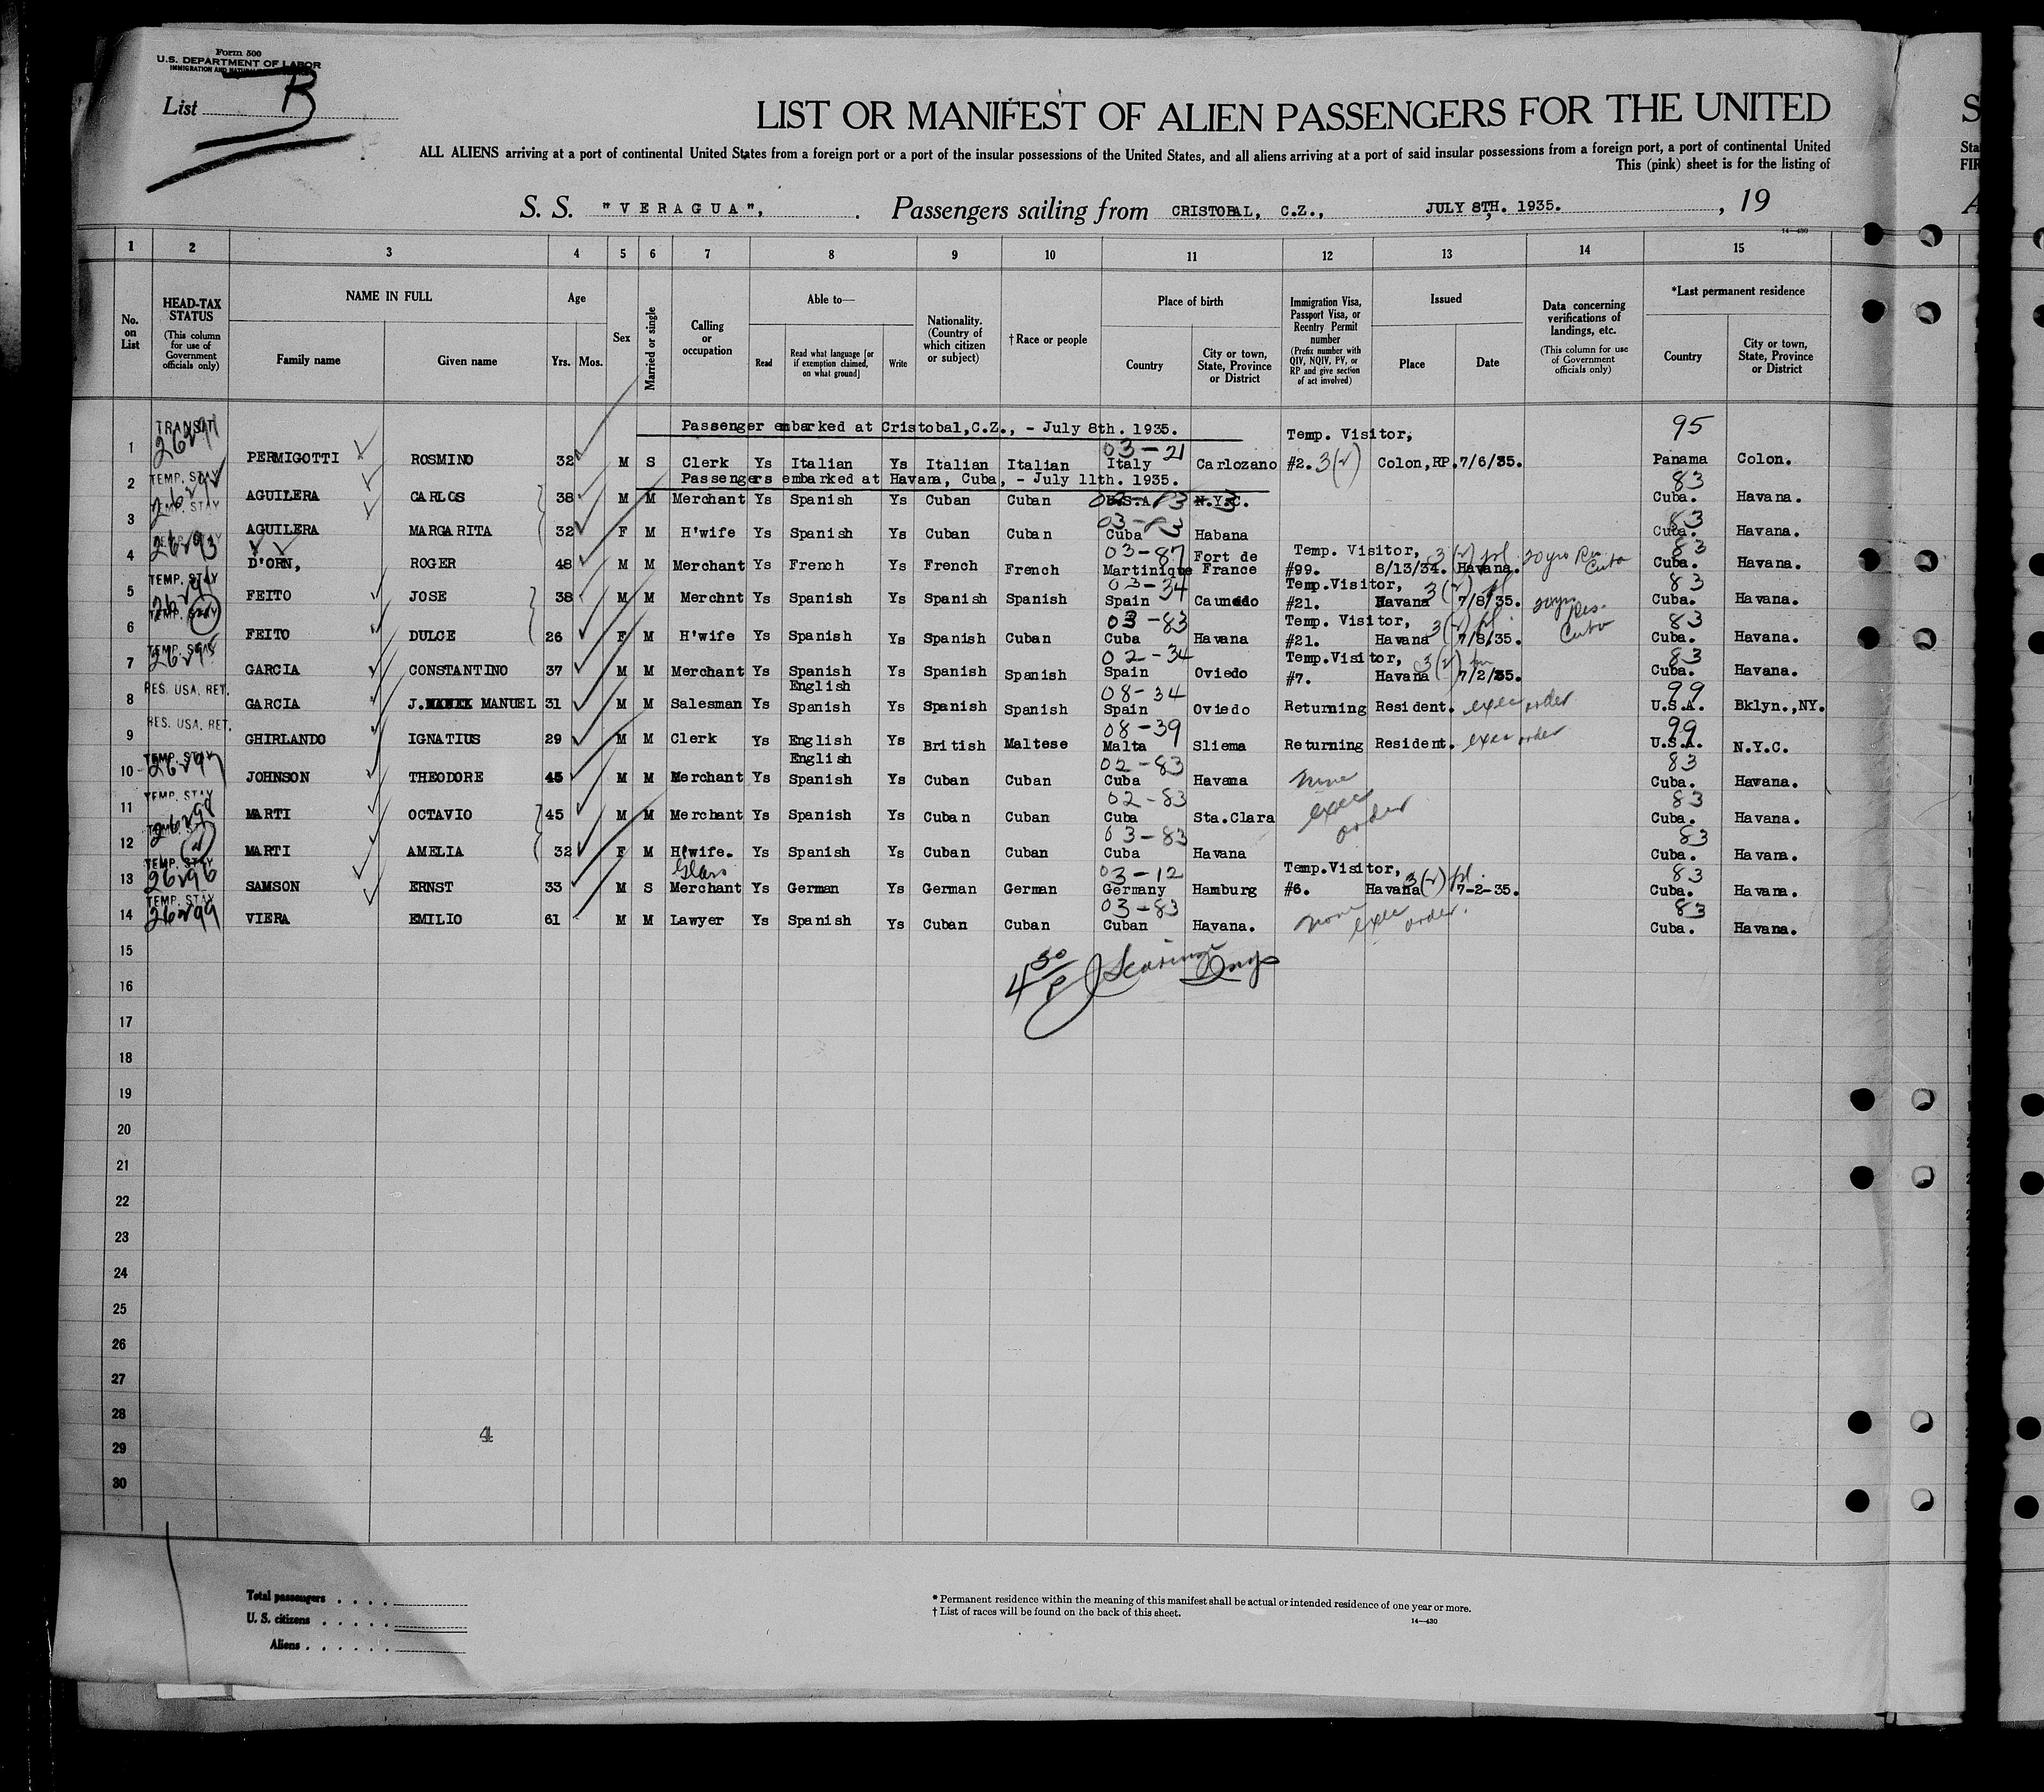 Form 500
U.S. DEPARTMENT OF LABOR
IMMIGRATION AND
List B
LIST OR MANIFEST OF ALIEN PASSENGERS FOR THE UNITED
ALL ALIENS arriving at a port of continental United States from a foreign port or a port of the insular possessions of the United States, and all aliens arriving at a port of said insular possessions from a foreign port, a port of continental United
This (pink) sheet is for the listing of
S. S. "VERAGUA", Passengers sailing from CRISTOBAL, C.Z., JULY 8TH. 1935. , 19
14—430
1 2 3 4 5 6 7 8 9 10 11 12 13 14 15
No. on List
HEAD-TAX STATUS (This column for use of Government officials only)
NAME IN FULL Family name Given name
Age Yrs. Mos.
Sex
Married or single
Calling or occupation
Able to— Read Read what language [or if exemption claimed, on what ground] Write
Nationality. (Country of which citizen or subject)
†Race or people
Place of birth Country City or town, State, Province or District
Immigration Visa, Passport Visa, or Reentry Permit number (Prefix number with QIV, NQIV, PV, or RP and give section of act involved)
Issued Place Date
Data concerning verifications of landings, etc. (This column for use of Government officials only)
*Last permanent residence Country City or town, State, Province or District
Passenger embarked at Cristobal,C.Z., - July 8th. 1935.
TRANSIT 03-21 Temp. Visitor, 95
1 PERMIGOTTI ROSMINO 32 M S Clerk Ys Italian Ys Italian Italian Italy Carlozano #2. 3(2) Colon,RP. 7/6/35. Panama Colon.
Passengers embarked at Havana, Cuba, - July 11th. 1935.
TEMP. STAY 83
2 AGUILERA CARLOS 38 M M Merchant Ys Spanish Ys Cuban Cuban U.S.A. N.Y.C. Cuba. Havana.
TEMP. STAY 83
3 AGUILERA MARGARITA 32 F M H'wife Ys Spanish Ys Cuban Cuban Cuba Habana Cuba. Havana.
26293 03-87 Temp. Visitor, 3(2) 20 yrs Cuba 83
4 D'ORN, ROGER 48 M M Merchant Ys French Ys French French Martinique Fort de France #99. 8/13/34. Havana. Cuba. Havana.
TEMP. STAY 03-34 Temp.Visitor, 3(2) 83
5 FEITO JOSE 38 M M Merchnt Ys Spanish Ys Spanish Spanish Spain Caunedo #21. Havana 7/8/35. 20 yrs Res. Cuba Cuba. Havana.
TEMP. STAY 03-83 Temp. Visitor, 3(2) 83
6 FEITO DULCE 26 F M H'wife Ys Spanish Ys Spanish Cuban Cuba Havana #21. Havana 7/8/35. Cuba. Havana.
TEMP. STAY 02-34 Temp.Visitor, 3(2) 83
7 GARCIA CONSTANTINO 37 M M Merchant Ys Spanish Ys Spanish Spanish Spain Oviedo #7. Havana 7/2/35. Cuba. Havana.
RES. USA, RET. English 08-34 99
8 GARCIA J. MANUEL 31 M M Salesman Ys Spanish Ys Spanish Spanish Spain Oviedo Returning Resident. exec order U.S.A. Bklyn.,NY.
RES. USA, RET. 08-39 99
9 GHIRLANDO IGNATIUS 29 M M Clerk Ys English Ys British Maltese Malta Sliema Returning Resident. exec order U.S.A. N.Y.C.
26297 English 02-83 83
10 JOHNSON THEODORE 45 M M Merchant Ys Spanish Ys Cuban Cuban Cuba Havana none Cuba. Havana.
TEMP. STAY 26298 02-83 83
11 MARTI OCTAVIO 45 M M Merchant Ys Spanish Ys Cuban Cuban Cuba Sta.Clara exec order Cuba. Havana.
03-83 83
12 MARTI AMELIA 32 F M H'wife. Ys Spanish Ys Cuban Cuban Cuba Havana Cuba. Havana.
TEMP. STAY 26296 Glass 03-12 Temp.Visitor, 3(2) 83
13 SAMSON ERNST 33 M S Merchant Ys German Ys German German Germany Hamburg #6. Havana 7-2-35. Cuba. Havana.
TEMP. STAY 26299 03-83 83
14 VIERA EMILIO 61 M M Lawyer Ys Spanish Ys Cuban Cuban Cuban Havana. none exec order. Cuba. Havana.
15
4 30/P
16
17
18
19
20
21
22
23
24
25
26
27
28
4
29
30
Total passengers
U. S. citizens
Aliens
* Permanent residence within the meaning of this manifest shall be actual or intended residence of one year or more.
† List of races will be found on the back of this sheet.
14—430